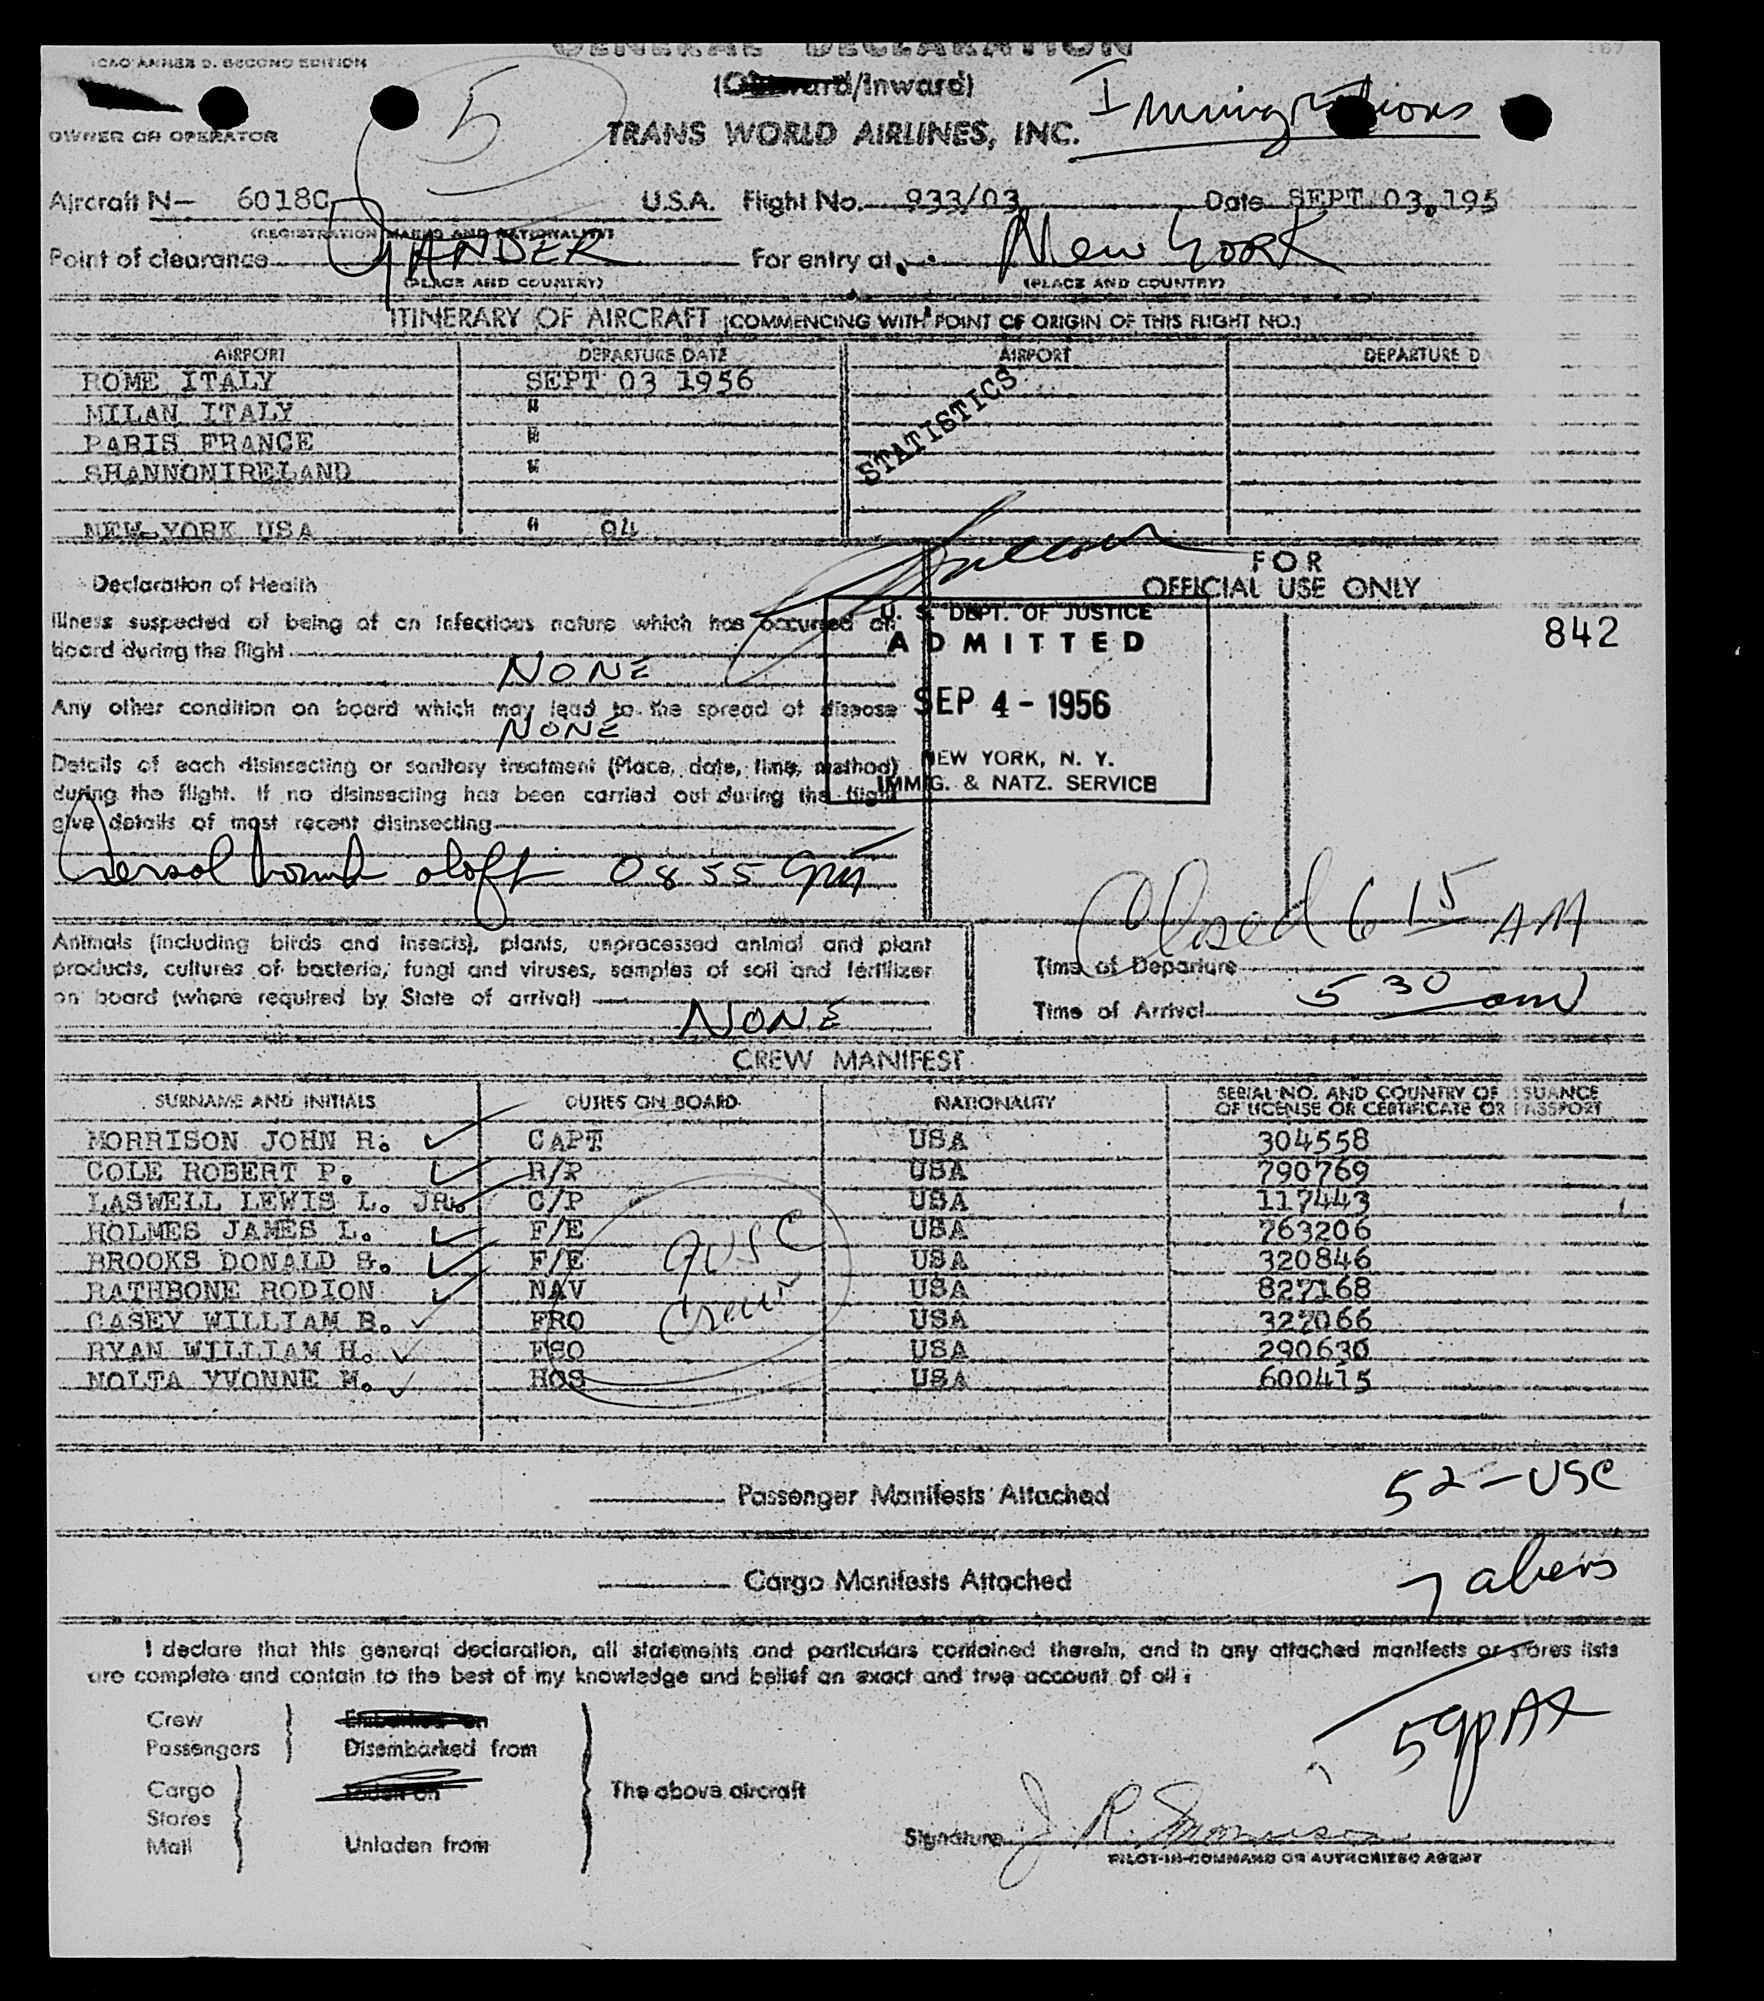 GENERAL DECLARATION
ICAO ANNEX 9. SECOND EDITION
(Outward/Inward)
5
Immigrations
OWNER OR OPERATOR
TRANS WORLD AIRLINES, INC.
Aircraft N- 6018C U.S.A. Flight No. 933/03 Date SEPT 03, 195
(REGISTRATION MARKS AND NATIONALITY)
Point of clearance GANDER For entry at New York
(PLACE AND COUNTRY) (PLACE AND COUNTRY)
ITINERARY OF AIRCRAFT (COMMENCING WITH POINT OF ORIGIN OF THIS FLIGHT NO.)
AIRPORT DEPARTURE DATE AIRPORT DEPARTURE D
ROME ITALY SEPT 03 1956
MILAN ITALY "
PARIS FRANCE "
SHANNONIRELAND "
STATISTICS
NEW YORK USA " 04
FOR
OFFICIAL USE ONLY
842
Declaration of Health
Illness suspected of being of an infectious nature which has occurred on
board during the flight
NONE
Any other condition on board which may lead to the spread of disease
NONE
Details of each disinsecting or sanitary treatment (Place, date, time, method)
during the flight. If no disinsecting has been carried out during the flight
give details of most recent disinsecting
Aerosol bomb aloft 0855 GMT
U. S. DEPT. OF JUSTICE
ADMITTED
SEP 4 - 1956
NEW YORK, N. Y.
IMMIG. & NATZ. SERVICE
Animals (including birds and insects), plants, unprocessed animal and plant
products, cultures of bacteria, fungi and viruses, samples of soil and fertilizer
on board (where required by State of arrival)
NONE
Closed 6 15 AM
Time of Departure
Time of Arrival 5 30 am
CREW MANIFEST
SURNAME AND INITIALS DUTIES ON BOARD NATIONALITY SERIAL NO. AND COUNTRY OF ISSUANCE
OF LICENSE OR CERTIFICATE OR PASSPORT
MORRISON JOHN R. CAPT USA 304558
COLE ROBERT P. R/P USA 790769
LASWELL LEWIS L. JR. C/P USA 117443
HOLMES JAMES L. F/E USA 763206
BROOKS DONALD S. F/E USA 320846
RATHBONE RODION NAV USA 827168
CASEY WILLIAM B. FRO USA 327066
RYAN WILLIAM H. FSO USA 290630
NOLTA YVONNE M. HOS USA 600415
9 USC
Crew
Passenger Manifests Attached
52-USC
Cargo Manifests Attached
7 aliens
I declare that this general declaration, all statements and particulars contained therein, and in any attached manifests or stores lists
are complete and contain to the best of my knowledge and belief an exact and true account of all:
59 pax
Crew
Passengers
Embarked on
Disembarked from
Cargo
Stores
Mail
Laden on
Unladen from
The above aircraft
Signature J. R. Morrison
PILOT-IN-COMMAND OR AUTHORIZED AGENT